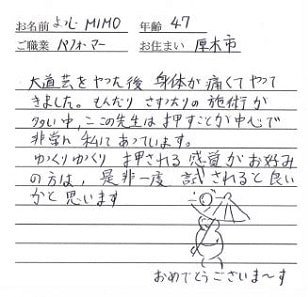 お名前 よ心 MIMO 年齢 47
ご職業 パフォーマー お住まい 厚木市
大道芸をやった後 身体が痛くてやって
きました。もんだり さすったりの施術が
多い中、この先生は押すことが中心で
非常に私にあっています。
ゆくりゆくり 押される感覚がお好み
の方は、是非一度 試されると良い
かと思います
おめでとうございま〜す